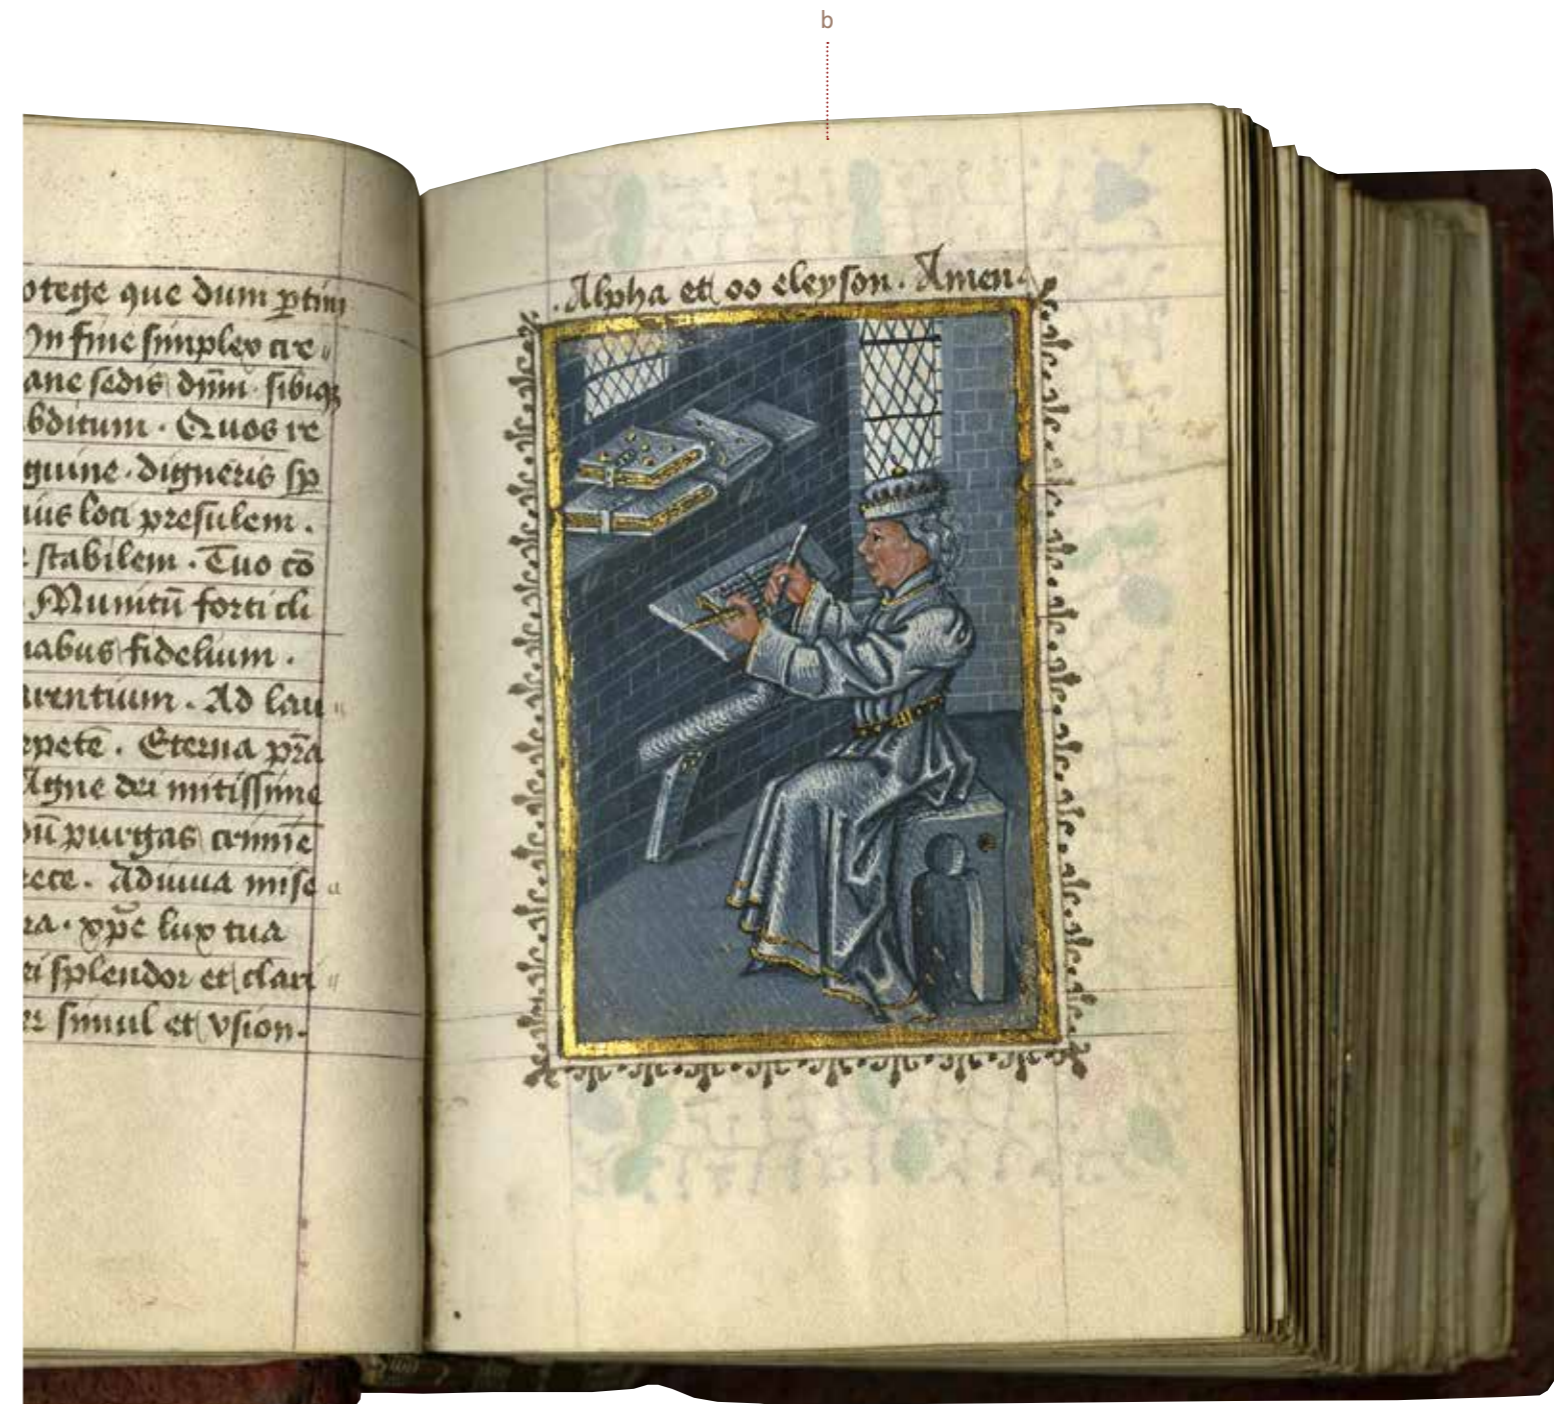 b
otege que dum ꝑtim
In fine simplex cre
ane sedis dūm · sibiqꝫ
bditum · Quos re
guine · digneris sp
ius loci presulem ·
stabilem · Tuo cō
Munitū forti cli
abus fidelium ·
rentium · Ad lau
epetē · Eterna pr̄a
Agne dei mitissime
purgas crimīe
Adiuua mise
ra · xp̄e lux tua
splendor et clari
simul et vsion·
· Alpha et oo eleyson · Amen ·